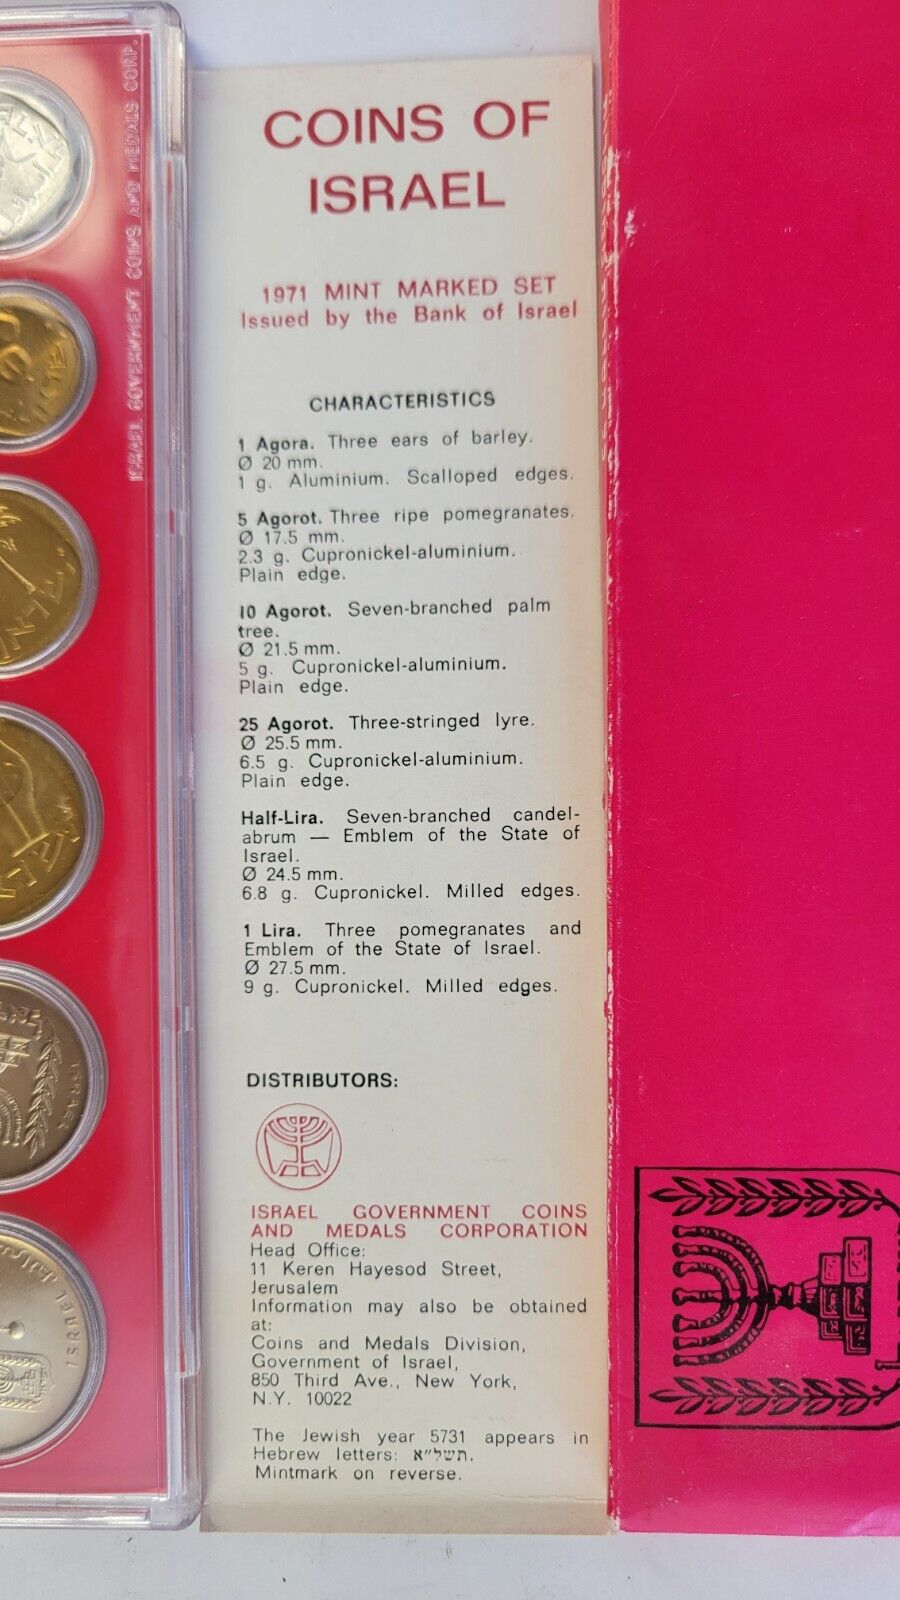 COINS OF
ISRAEL
1971 MINT MARKED SET
Issued by the Bank of Israel
CHARACTERISTICS
1 Agora. Three ears of barley.
Ø 20 mm.
1 g. Aluminium. Scalloped edges.
5 Agorot. Three ripe pomegranates.
Ø 17.5 mm.
2.3 g. Cupronickel-aluminium.
Plain edge.
10 Agorot. Seven-branched palm
tree.
Ø 21.5 mm.
5 g. Cupronickel-aluminium.
Plain edge.
25 Agorot. Three-stringed lyre.
Ø 25.5 mm.
6.5 g. Cupronickel-aluminium.
Plain edge.
Half-Lira. Seven-branched candel-
abrum — Emblem of the State of
Israel.
Ø 24.5 mm.
6.8 g. Cupronickel. Milled edges.
1 Lira. Three pomegranates and
Emblem of the State of Israel.
Ø 27.5 mm.
9 g. Cupronickel. Milled edges.
DISTRIBUTORS:
ISRAEL GOVERNMENT COINS
AND MEDALS CORPORATION
Head Office:
11 Keren Hayesod Street,
Jerusalem
Information may also be obtained
at:
Coins and Medals Division,
Government of Israel,
850 Third Ave., New York,
N.Y. 10022
The Jewish year 5731 appears in
Hebrew letters: תשל״א.
Mintmark on reverse.
ISRAEL GOVERNMENT COINS AND MEDALS CORP.
ISRAEL
ISRAEL